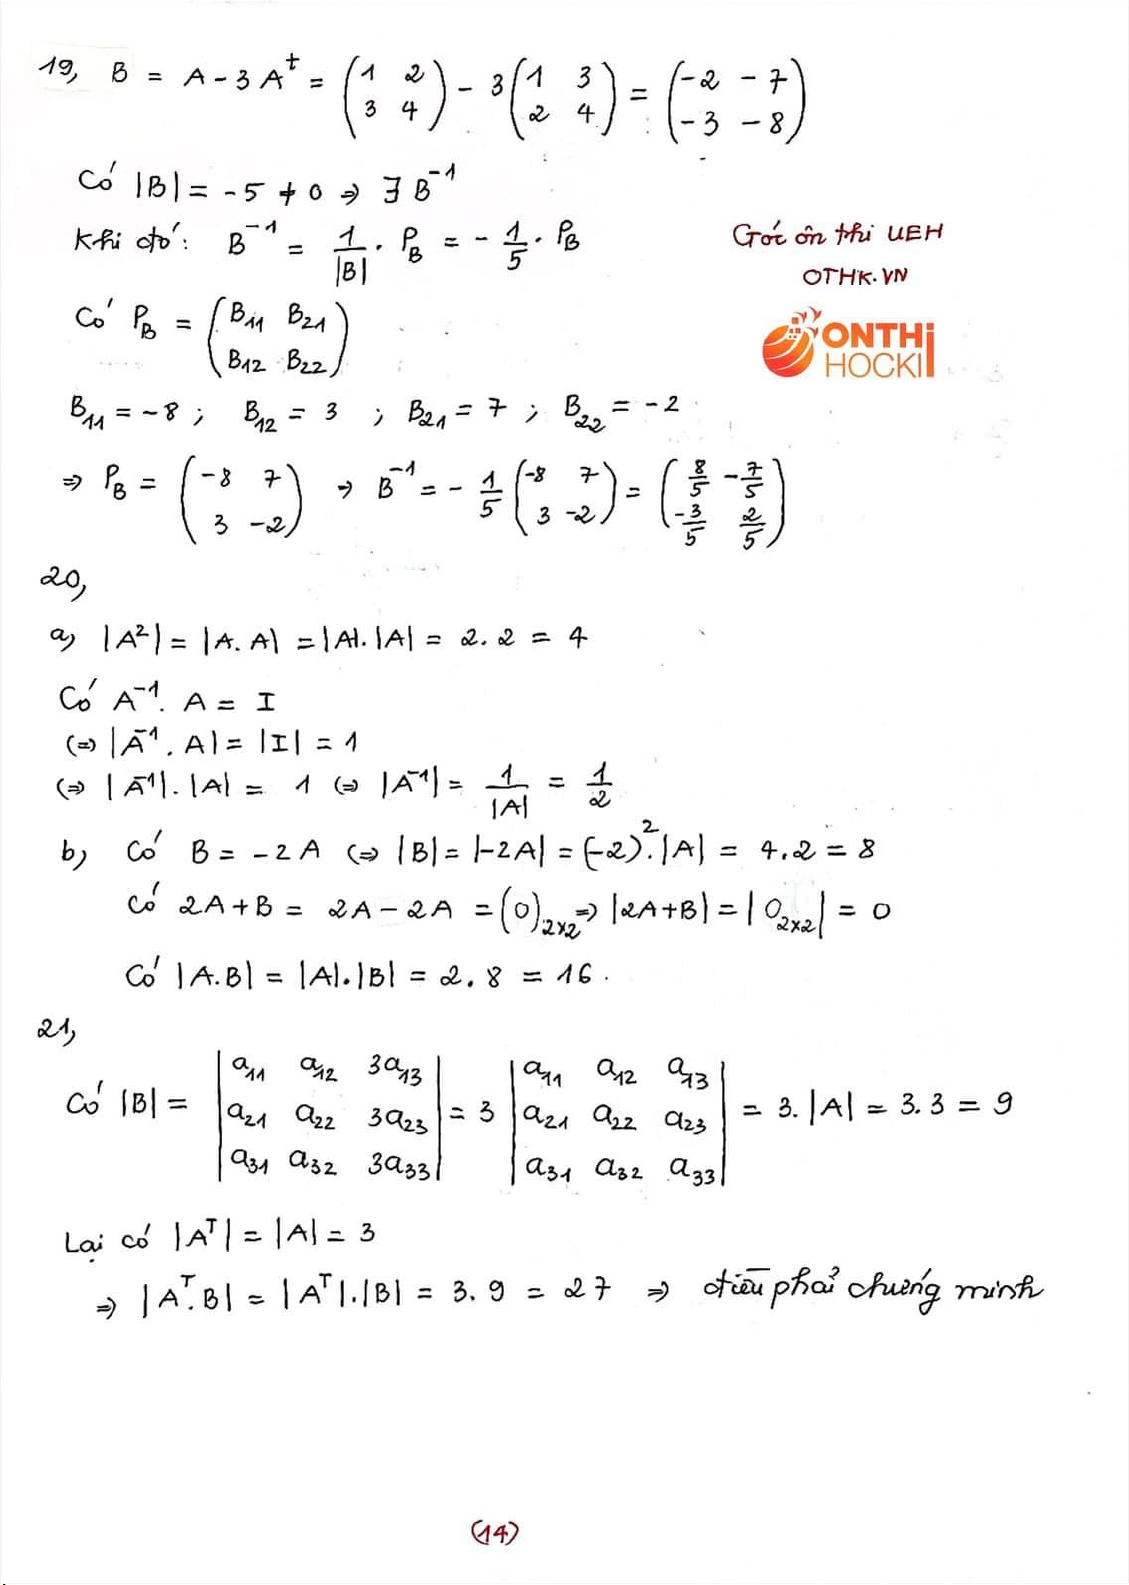 19, B = A - 3A^t = (1 2 3 4) - 3(1 3 2 4) = (-2 -7 -3 -8)
Có |B| = -5 ≠ 0 ⇒ ∃ B^-1
Khi đó: B^-1 = 1/|B| . P_B = - 1/5 . P_B
Góc ôn thi UEH
OTHK.VN
ONTHi
HOCKI
Có P_B = (B_11 B_21 B_12 B_22)
B_11 = -8 ; B_12 = 3 ; B_21 = 7 ; B_22 = -2
⇒ P_B = (-8 7 3 -2) ⇒ B^-1 = - 1/5 (-8 7 3 -2) = (8/5 -7/5 -3/5 2/5)
20,
a) |A^2| = |A.A| = |A|.|A| = 2.2 = 4
Có A^-1. A = I
(⇒) |A^-1. A| = |I| = 1
(⇒) |A^-1|.|A| = 1 (⇒) |A^-1| = 1/|A| = 1/2
b) Có B = -2A (⇒) |B| = |-2A| = (-2)^2.|A| = 4.2 = 8
Có 2A+B = 2A - 2A = (0)_2×2 ⇒ |2A+B| = |0_2×2| = 0
Có |A.B| = |A|.|B| = 2.8 = 16.
21,
Có |B| = |a_11 a_12 3a_13 a_21 a_22 3a_23 a_31 a_32 3a_33| = 3 |a_11 a_12 a_13 a_21 a_22 a_23 a_31 a_32 a_33| = 3.|A| = 3.3 = 9
Lại có |A^T| = |A| = 3
⇒ |A^T.B| = |A^T|.|B| = 3.9 = 27 ⇒ điều phải chứng minh
(14)